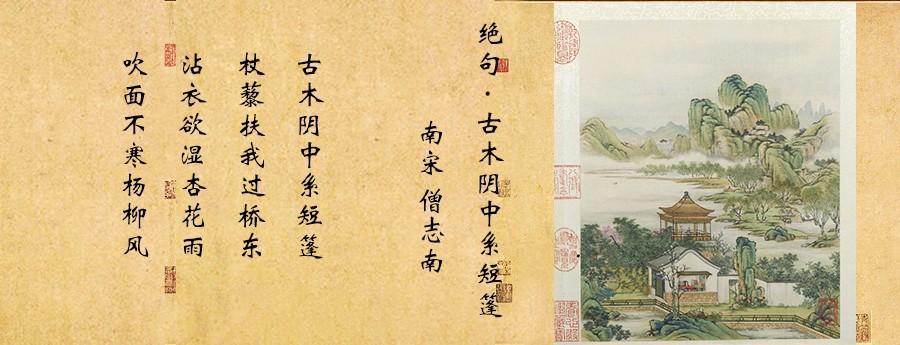 绝句·古木阴中系短篷
南宋 僧志南
古木阴中系短篷
杖藜扶我过桥东
沾衣欲湿杏花雨
吹面不寒杨柳风